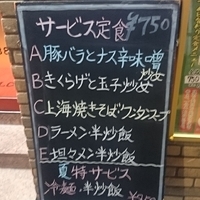 サービス定食 ¥750
A豚バラとナス辛味噌炒め
Bきくらげと玉子炒め
C上海焼きそばワンタンスープ
Dラーメン半炒飯
E坦々メン半炒飯
夏特サービス
冷麺・半炒飯